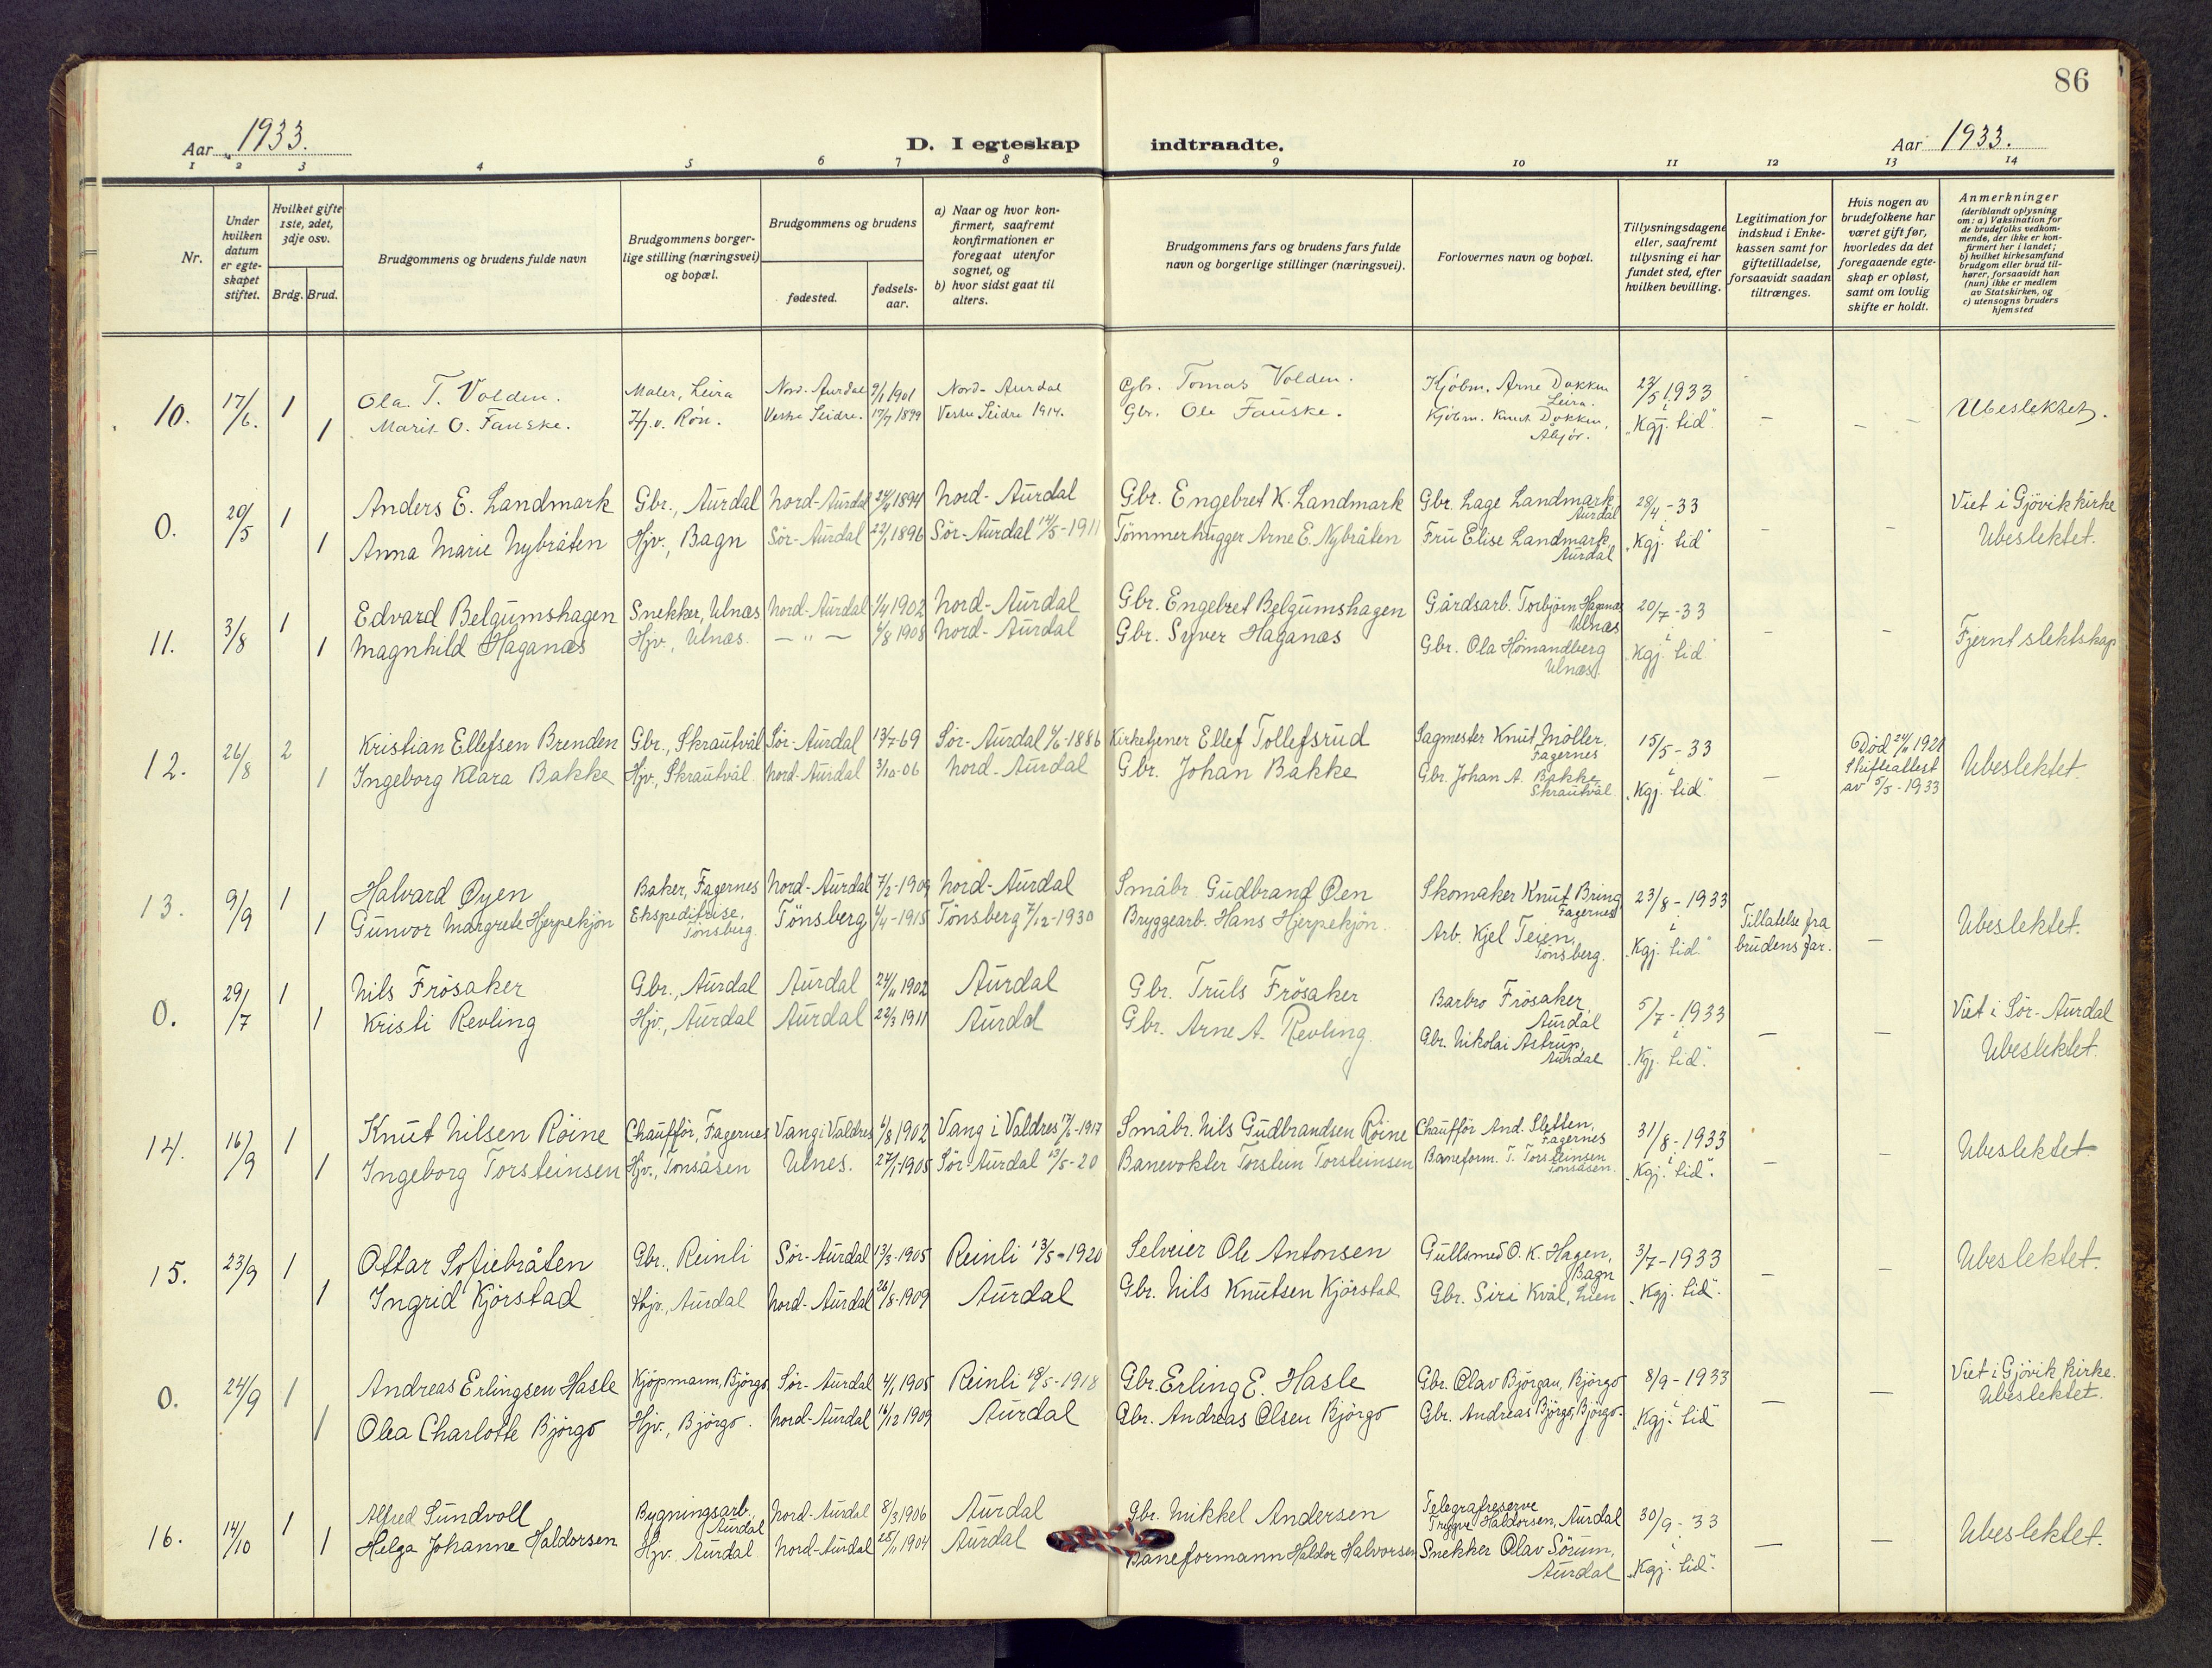 86
Aar 1933.
D. I egteskap indtraadte.
Aar 1933.
1 2 3 4 5 6 7 8 9 10 11 12 13 14
Nr.
Under hvilken datum er egteskapet stiftet.
Hvilket gifte 1ste, 2det, 3dje osv.
Brdg. Brud.
Brudgommens og brudens fulde navn
Brudgommens borgerlige stilling (næringsvei) og bopæl.
Brudgommens og brudens
fødested.
fødselsaar.
a) Naar og hvor konfirmert, saafremt konfirmationen er foregaat utenfor sognet, og
b) hvor sidst gaat til alters.
Brudgommens fars og brudens fars fulde navn og borgerlige stillinger (næringsvei).
Forlovernes navn og bopæl.
Tillysningsdagene eller, saafremt tillysning ei har fundet sted, efter hvilken bevilling.
Legitimation for indskud i Enkekassen samt for giftetilladelse, forsaavidt saadan tiltrænges.
Hvis nogen av brudefolkene har været gift før, hvorledes da det foregaaende egteskap er opløst, samt om lovlig skifte er holdt.
Anmerkninger (deriblandt oplysning om: a) Vaksination for de brudefolks vedkommende, der ikke er konfirmert her i landet; b) hvilket kirkesamfund brudgom eller brud tilhører, forsaavidt han (hun) ikke er medlem av Statskirken, og c) utensogns bruders hjemsted
10. 17/6. 1 Ola T. Volden. Maler, Leira Nord-Aurdal 9/1 1901 Nord-Aurdal Gbr. Tomas Volden. Kjöbm. Arne Dokken Leira. 23/5 1933
1 Marit O. Fauske. Hj.v. Rön. Vestre Slidre. 17/7 1899 Vestre Slidre 1914. Gbr. Ole Fauske. Kjöbm. Knut Dokken, Åbjör. i "Kgj. tid" — — — Ubeslektet.
0. 20/5 1 Anders E. Landmark Gbr., Aurdal Nord-Aurdal 24/4 1894 Nord-Aurdal Gbr. Engebret K. Landmark Gbr. Lage Landmark Aurdal 28/4-33 Viet i Gjövik kirke
1 Anna Marie Nybråten Hjv., Bagn Sör-Aurdal 22/1 1896 Sör-Aurdal 14/5-1911 Tömmerhugger Arne E. Nybråten Fru Elise Landmark, Aurdal i "Kgj. tid" — — Ubeslektet.
11. 3/8 1 Edvard Belgumshagen Snekker, Ulnæs Nord-Aurdal 1/4 1902 Nord-Aurdal Gbr. Engebret Belgumshagen Gårdsarb. Torbjörn Haganæs Ulnæs 20/7-33
1 Magnhild Haganæs Hjv., Ulnæs. — " — 1/8 1908 Nord-Aurdal Gbr. Syver Haganæs Gbr. Ola Hömandberg Ulnæs. i "Kgj. tid" — — Fjernt slektskap
12. 26/8 2 Kristian Ellefsen Brenden Gbr., Skrautvål Sör-Aurdal 13/7-69 Sör-Aurdal 6/6-1886 Kirketjener Ellef Tollefsrud Sagmester Knut Möller, Fagernes 15/5-33 Död 24/11 1928
1 Ingeborg Klara Bakke Hjv., Skrautvål Nord-Aurdal 3/10-06 Nord-Aurdal Gbr. Johan Bakke Gbr. Johan A. Bakke Skrautvål i "Kgj. tid" — Skifteattest av 5/5-1933 Ubeslektet.
13. 9/9 1 Halvard Øyen Baker, Fagernes Nord-Aurdal 7/2-1909 Nord-Aurdal Småbr. Gudbrand Øen Skomaker Knut Bring Fagernes 23/8-1933
1 Gunvor Margrete Hjerpekjön Ekspeditrise, Tönsberg. Tönsberg 6/4-1915 Tönsberg 7/12-1930 Bryggearb. Hans Hjerpekjön. Arb. Kjel Teien, Tönsberg. i "Kgj. tid" Tillatelse fra brudens far. — Ubeslektet.
0. 29/7 1 Nils Frösaker Gbr., Aurdal Aurdal 24/11 1902 Aurdal Gbr. Truls Frösaker Barbro Frösaker, Aurdal 5/7-1933 Viet i Sör-Aurdal
1 Kristi Revling Hjv., Aurdal Aurdal 22/3 1911 Aurdal Gbr. Arne A. Revling. Gbr. Nikolai Astrup, Aurdal i "Kgj. tid". — — Ubeslektet.
14. 16/9 1 Knut Nilsen Röine Chaufför, Fagernes Vang i Valdres 6/8 1902 Vang i Valdres 17/6-1917 Småbr. Nils Gudbrandsen Röine Chaufför And. Sletten, Fagernes 31/8-1933
1 Ingeborg Torsteinsen Hjv., Tonsåsen Ulnes. 27/1 1905 Sör-Aurdal 13/5-20 Banevokter Torstein Torsteinsen Baneform. T. Torsteinsen Tonsåsen. i "Kgj. tid". — — Ubeslektet
15. 23/9 1 Ottar Sofiebråten Gbr., Reinli Sör-Aurdal 13/3-1905 Reinli 13/5-1920 Selveier Ole Antonsen Gullsmed O. K. Hagen, Bagn 3/7-1933
1 Ingrid Kjörstad Hjv., Aurdal Nord-Aurdal 26/8-1909 Aurdal Gbr. Nils Knutsen Kjörstad Gbr. Siri Kvål, Lien "Kgj. tid". — — Ubeslektet.
0. 24/9 1 Andreas Erlingsen Hasle Kjöpmann, Björgo Sör-Aurdal 4/1 1905 Reinli 18/5-1918 Gbr. Erling E. Hasle Gbr. Olav Björgan, Björgo 8/9-1933 Viet i Gjövik kirke.
1 Olea Charlotte Björgo Hjv., Björgo. Nord-Aurdal 16/12 1909 Aurdal Gbr. Andreas Olsen Björgo Gbr. Andreas Björgo, Björgo. i "Kgj. tid" — — Ubeslektet.
16. 14/10 1 Alfred Sundvoll Bygningsarb., Aurdal Nord-Aurdal 8/3 1906 Aurdal Gbr. Mikkel Andersen Telegrafreserve Trygve Haldorsen, Aurdal 30/9-33
1 Helga Johanne Haldorsen Hjv. Aurdal Nord-Aurdal 25/11 1904 Aurdal Baneformann Haldor Halvorsen Snekker Olav Sörum, Aurdal i "Kgj. tid". — — Ubeslektet.